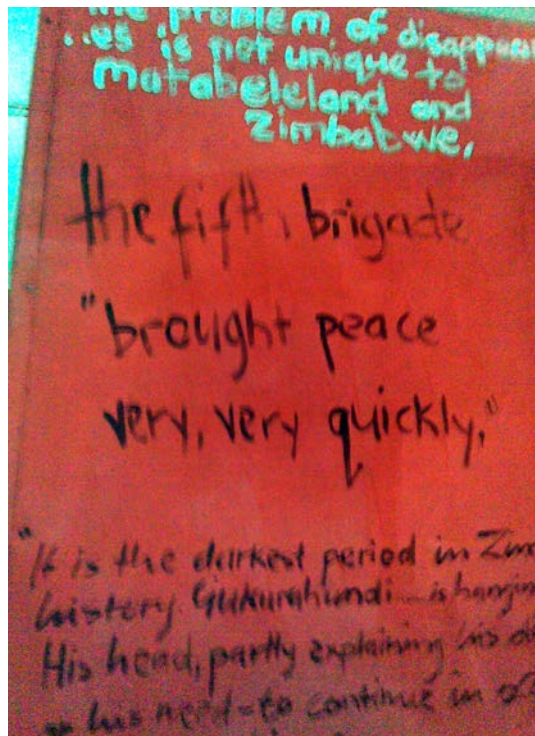 the problem of disappear
..es is not unique to
matabeleland and
Zimbabwe,
the fifth, brigade
"brought peace
very, very quickly,"
"It is the darkest period in Zim
history. Gukurahundi... is hanging
His head, partly explaining his
his need-to continue in